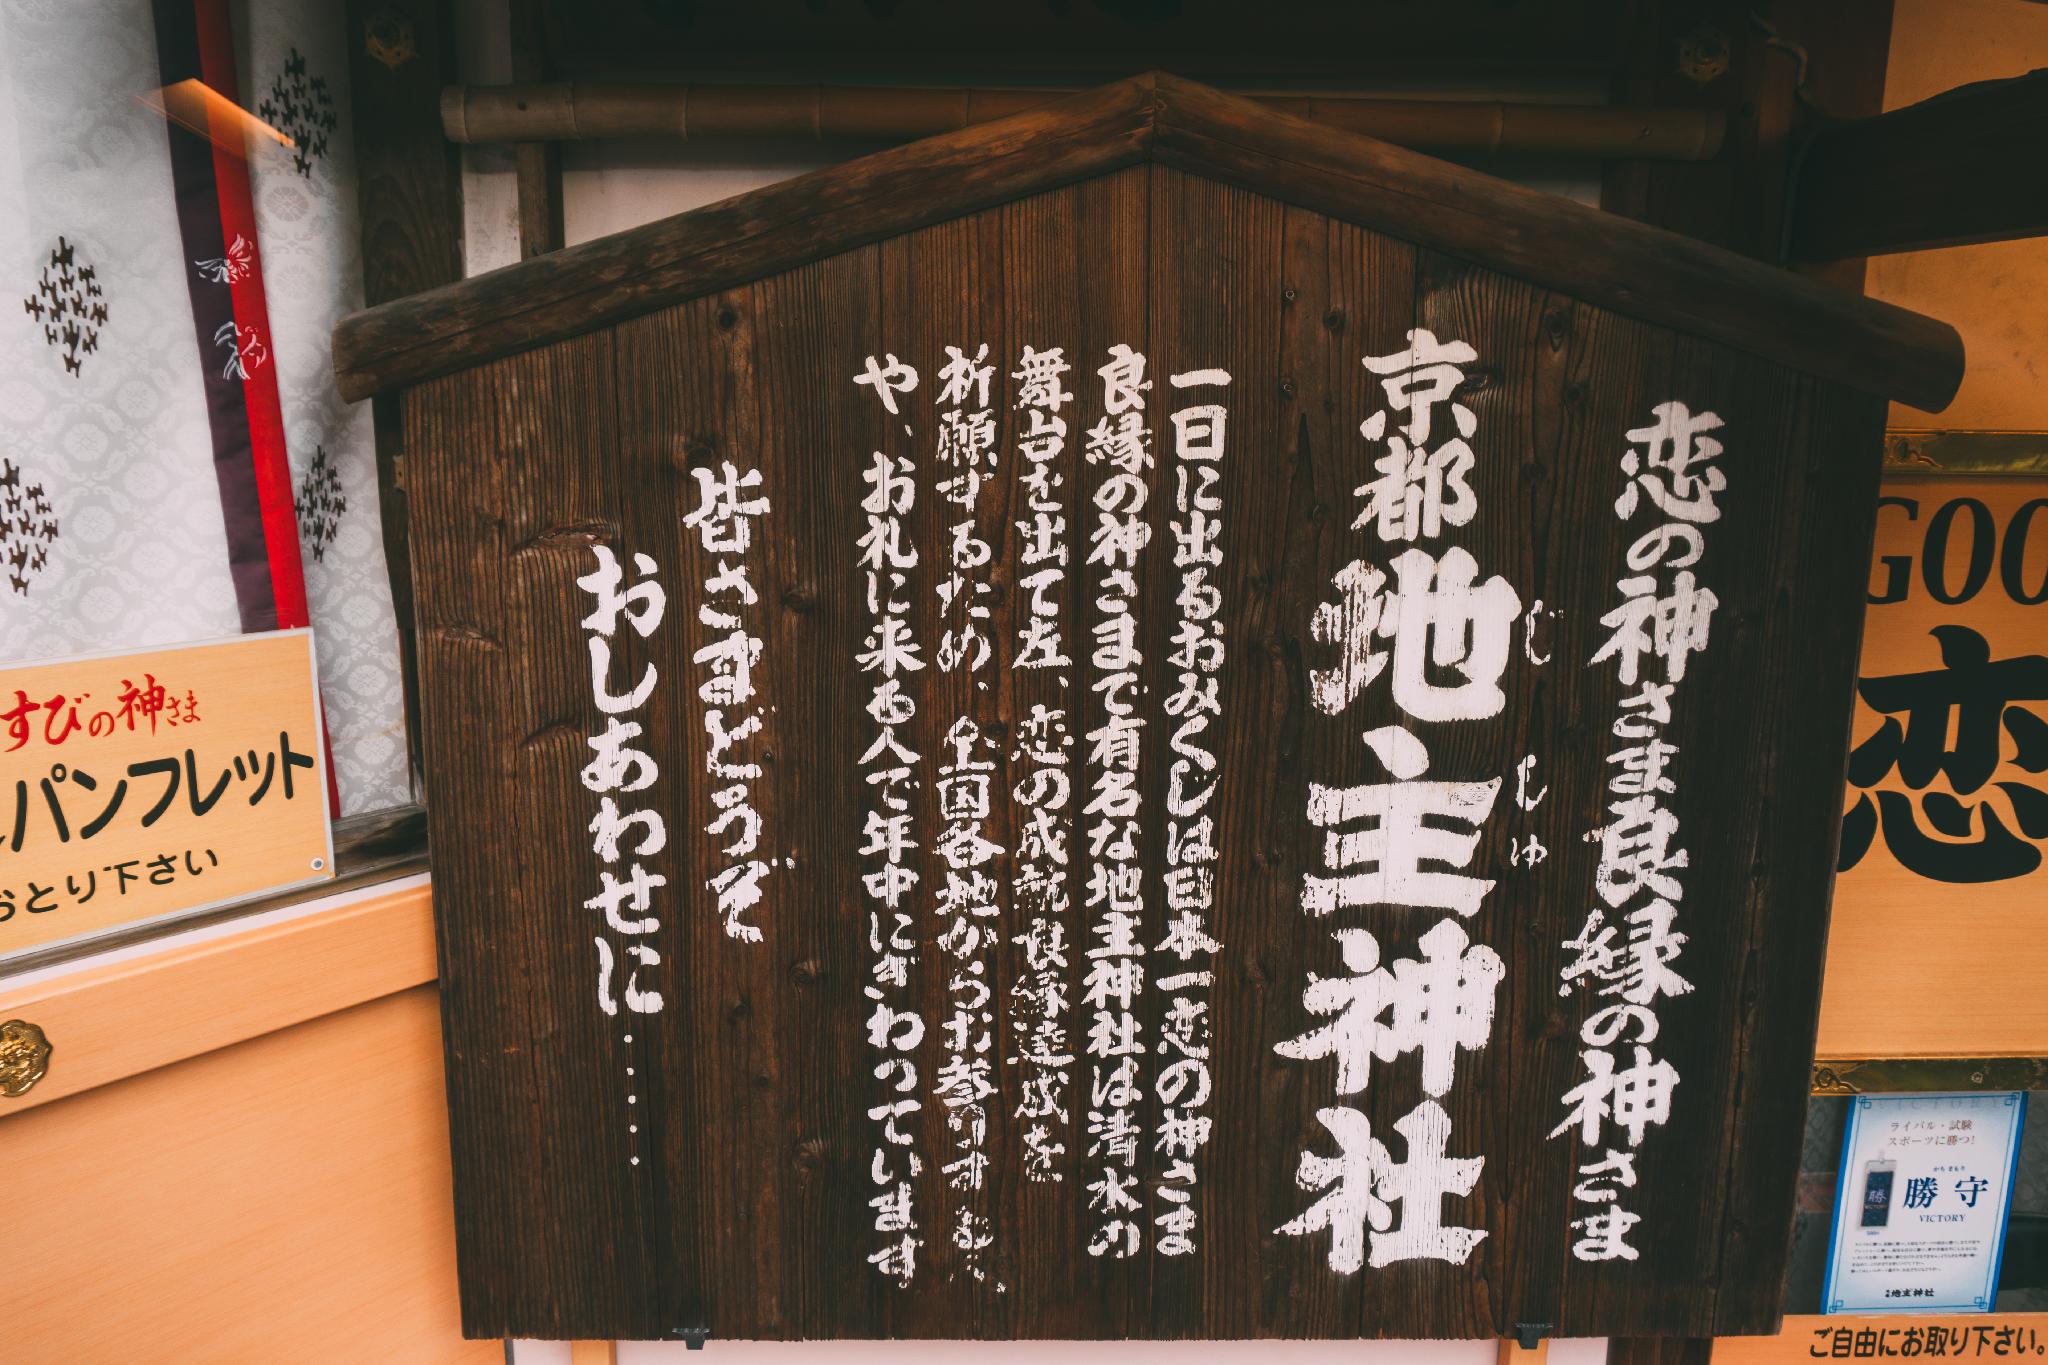 恋の神さま良縁の神さま
京都地主神社
じ しゅ
一日に出るおみくじは日本一恋の神さま
良縁の神さまで有名な地主神社は清水の
舞台を出て左、恋の成就良縁達成を
祈願するため、全国各地からお参りする人
や、お礼に来る人で年中にぎわっています
皆さまどうぞ
おしあわせに……
すびの神さま
パンフレット
おとり下さい
GOO
恋
ライバル・試験
スポーツに勝つ!
かちまもり
勝守
VICTORY
地主神社
ご自由にお取り下さい。